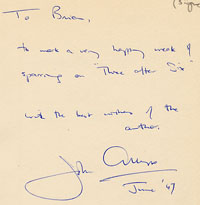 To Brian,
to mark a very happy week of
sparring on "Three after Six"
with the best wishes of the
author.
John
June